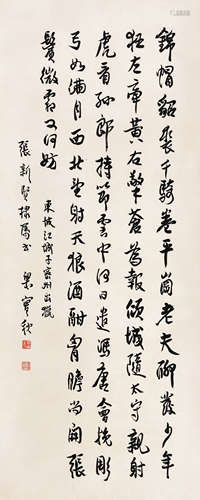 錦帽貂裘千騎卷平崗老夫聊發少年
狂左牽黃右擎蒼為報傾城隨太守親射
虎看孫郎持節雲中何日遣馮唐會挽彫
弓如滿月西北望射天狼酒酣胷膽尚開張
鬢微霜又何妨
東坡江城子密州出獵
張新賢棣屬書
梁實秋